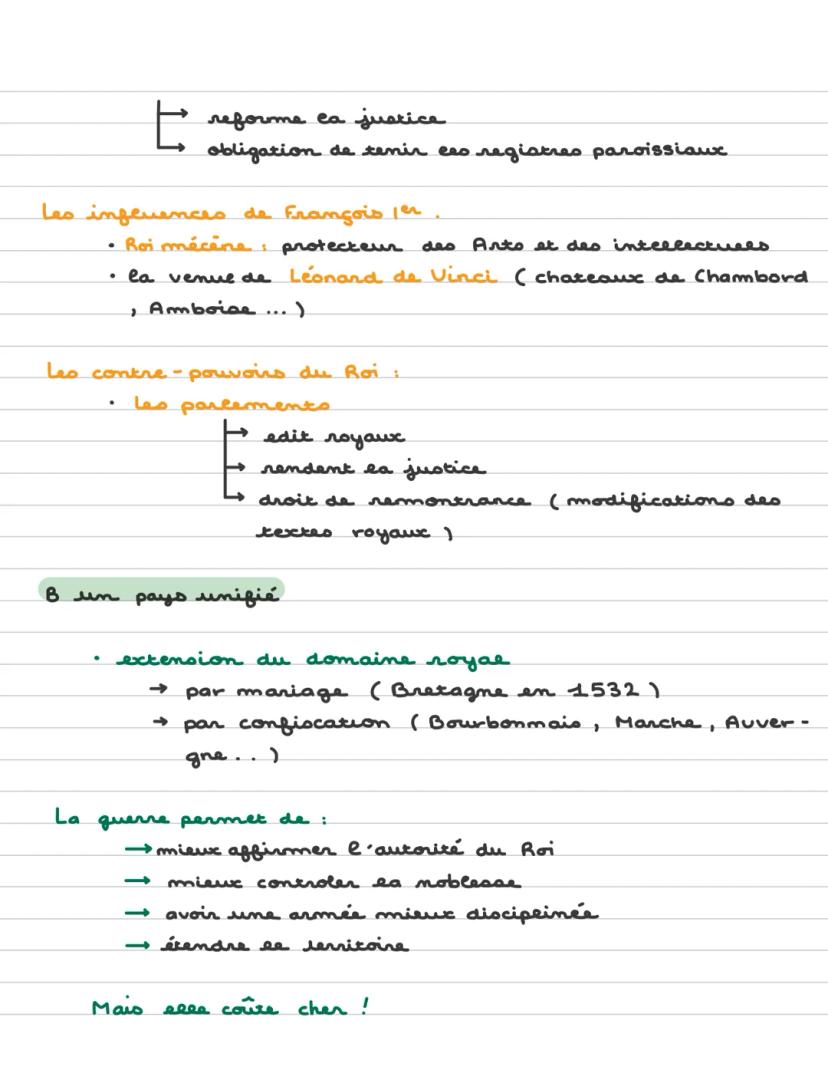 → reforme la justice
→ obligation de tenir les registres paroissiaux
Les influences de François 1er.
• Roi mécène : protecteur des Arts et des intellectuels
• la venue de Léonard de Vinci ( chateaux de Chambord
, Amboise ... )
Les contre - pouvoirs du Roi :
• les parlements
→ edit royaux
→ rendent la justice
→ droit de remontrance ( modifications des
textes royaux )
B un pays unifié
• extension du domaine royal
→ par mariage ( Bretagne en 1532 )
→ par confiscation ( Bourbonnais , Marche , Auver -
gne . . )
La guerre permet de :
→ mieux affirmer l'autorité du Roi
→ mieux controler la noblesse
→ avoir une armée mieux disciplinée
→ étendre le territoire
Mais elle coûte cher !